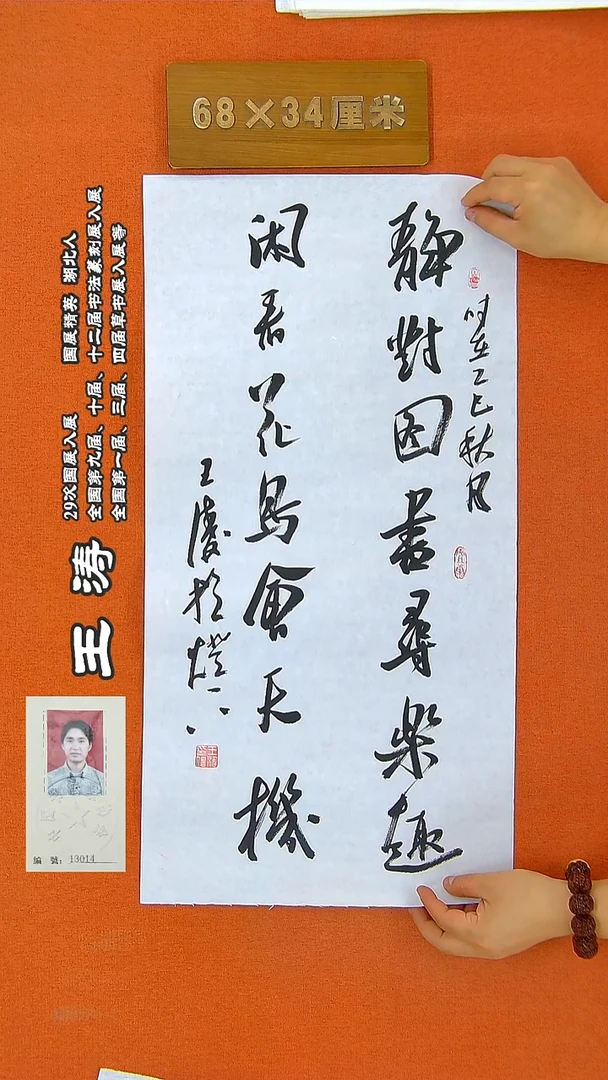 68×34厘米
静對图書尋樂趣
闲看花鳥會天機
时在乙巳秋月
王涛於燈下
29次国展入展 国展精英 湖北人
全国第九届、十届、十二届书法篆刻展入展
全国第一届、三届、四届草书展入展等
王涛
編 號：13014